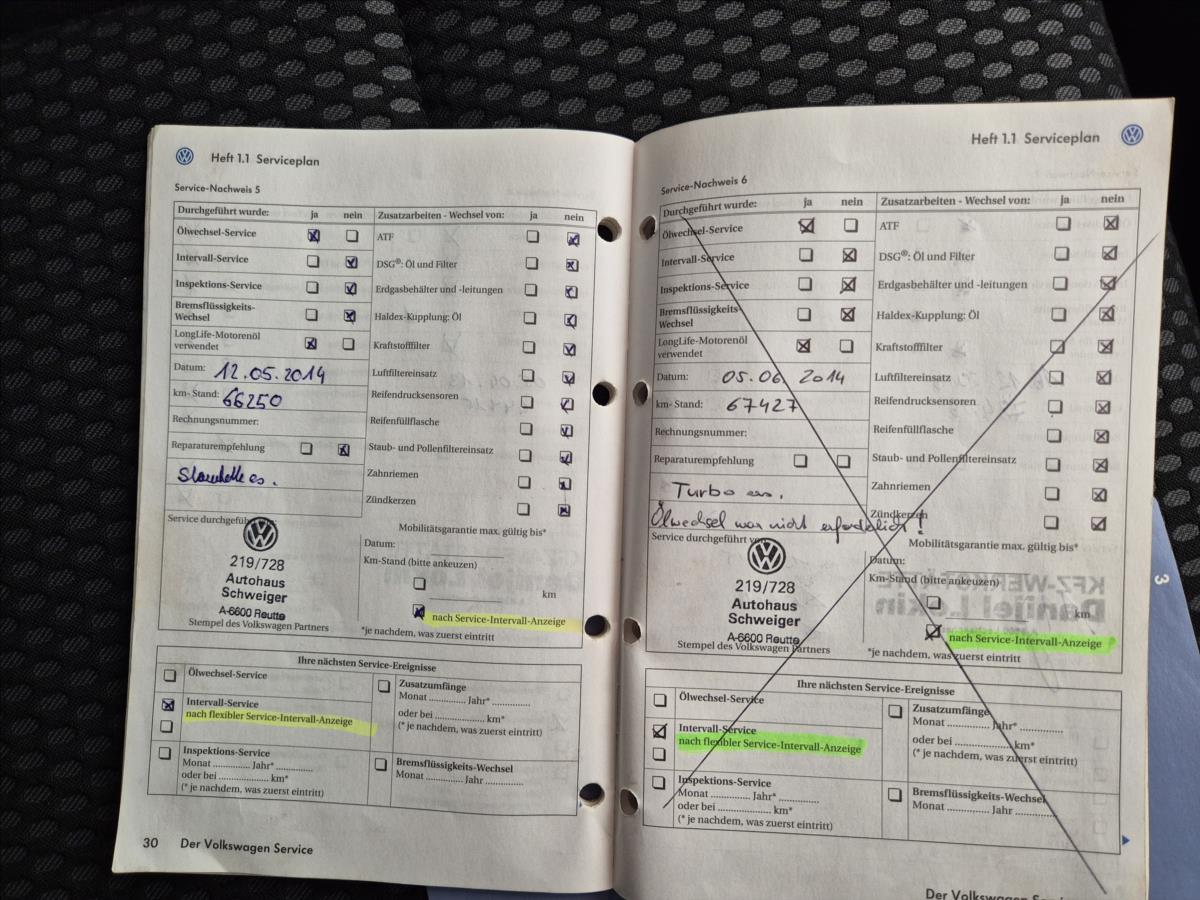 Heft 1.1 Serviceplan
Service-Nachweis 5
Durchgeführt wurde: ja nein
Zusatzarbeiten - Wechsel von: ja nein
Ölwechsel-Service
ATF
Intervall-Service
DSG®: Öl und Filter
Inspektions-Service
Erdgasbehälter und -leitungen
Bremsflüssigkeits-
Wechsel
Haldex-Kupplung: Öl
LongLife-Motorenöl
verwendet
Kraftstofffilter
Datum: 12.05.2014
Luftfiltereinsatz
km-Stand: 66250
Reifendrucksensoren
Rechnungsnummer:
Reifenfüllflasche
Reparaturempfehlung
Staub- und Pollenfiltereinsatz
Zahnriemen
Zündkerzen
Service durchgeführt
219/728
Autohaus
Schweiger
A-6600 Reutte
Stempel des Volkswagen Partners
Mobilitätsgarantie max. gültig bis*
Datum:
Km-Stand (bitte ankeuzen)
km
nach Service-Intervall-Anzeige
*je nachdem, was zuerst eintritt
Ihre nächsten Service-Ereignisse
Ölwechsel-Service
Intervall-Service
nach flexibler Service-Intervall-Anzeige
Zusatzumfänge
Monat ............ Jahr* ..............
oder bei .............. km*
(* je nachdem, was zuerst eintritt)
Inspektions-Service
Monat ............ Jahr* ..............
oder bei .............. km*
(* je nachdem, was zuerst eintritt)
Bremsflüssigkeits-Wechsel
Monat ............ Jahr ..............
30 Der Volkswagen Service
Heft 1.1 Serviceplan
Service-Nachweis 6
Durchgeführt wurde: ja nein
Zusatzarbeiten - Wechsel von: ja nein
Ölwechsel-Service
ATF
Intervall-Service
DSG®: Öl und Filter
Inspektions-Service
Erdgasbehälter und -leitungen
Bremsflüssigkeits-
Wechsel
Haldex-Kupplung: Öl
LongLife-Motorenöl
verwendet
Kraftstofffilter
Datum: 05.06 2014
Luftfiltereinsatz
km-Stand: 67427
Reifendrucksensoren
Rechnungsnummer:
Reifenfüllflasche
Reparaturempfehlung
Staub- und Pollenfiltereinsatz
Turbo
Zahnriemen
Zündkerzen
Ölwechsel war nicht erforderlich!
Service durchgeführt von
219/728
Autohaus
Schweiger
A-6600 Reutte
Stempel des Volkswagen Partners
Mobilitätsgarantie max. gültig bis*
Datum:
Km-Stand (bitte ankeuzen)
km
nach Service-Intervall-Anzeige
*je nachdem, was zuerst eintritt
Ihre nächsten Service-Ereignisse
Ölwechsel-Service
Intervall-Service
nach flexibler Service-Intervall-Anzeige
Zusatzumfänge
Monat ............ Jahr* ..............
oder bei .............. km*
(* je nachdem, was zuerst eintritt)
Inspektions-Service
Monat ............ Jahr* ..............
oder bei .............. km*
(* je nachdem, was zuerst eintritt)
Bremsflüssigkeits-Wechsel
Monat ............ Jahr ..............
Der Volkswagen
3